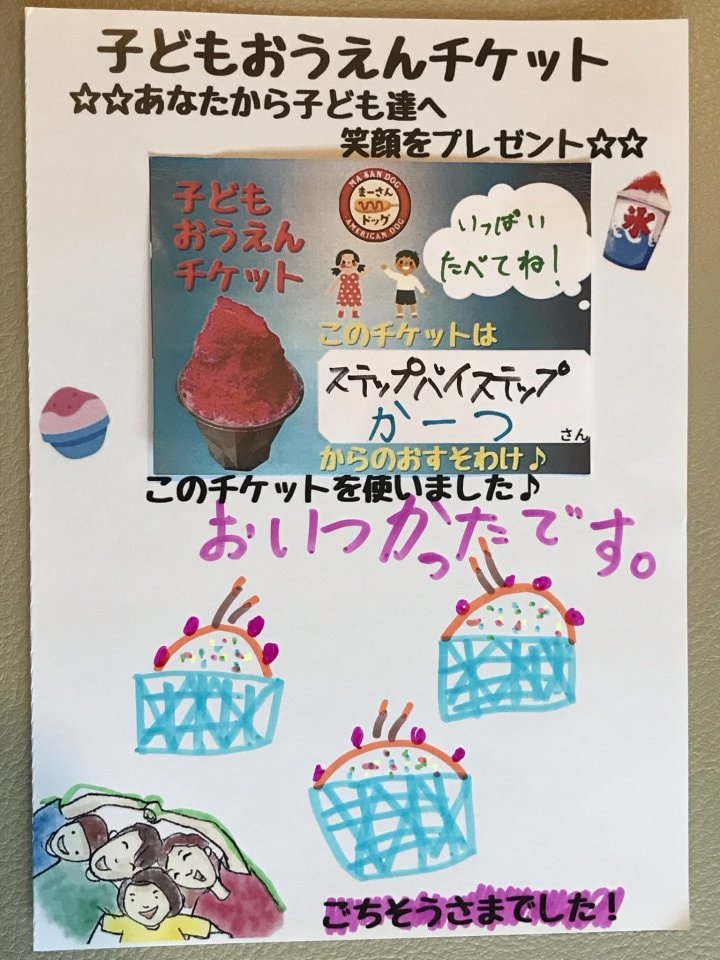 子どもおうえんチケット
☆☆あなたから子ども達へ
笑顔をプレゼント☆☆
子ども
おうえん
チケット
MA SAN DOG
まーさん
ドッグ
AMERICAN DOG
いっぱい
たべてね!
氷
このチケットは
ステップバイステップ
かーつ
さん
からのおすそわけ♪
このチケットを使いました♪
おいつかったです。
ごちそうさまでした!